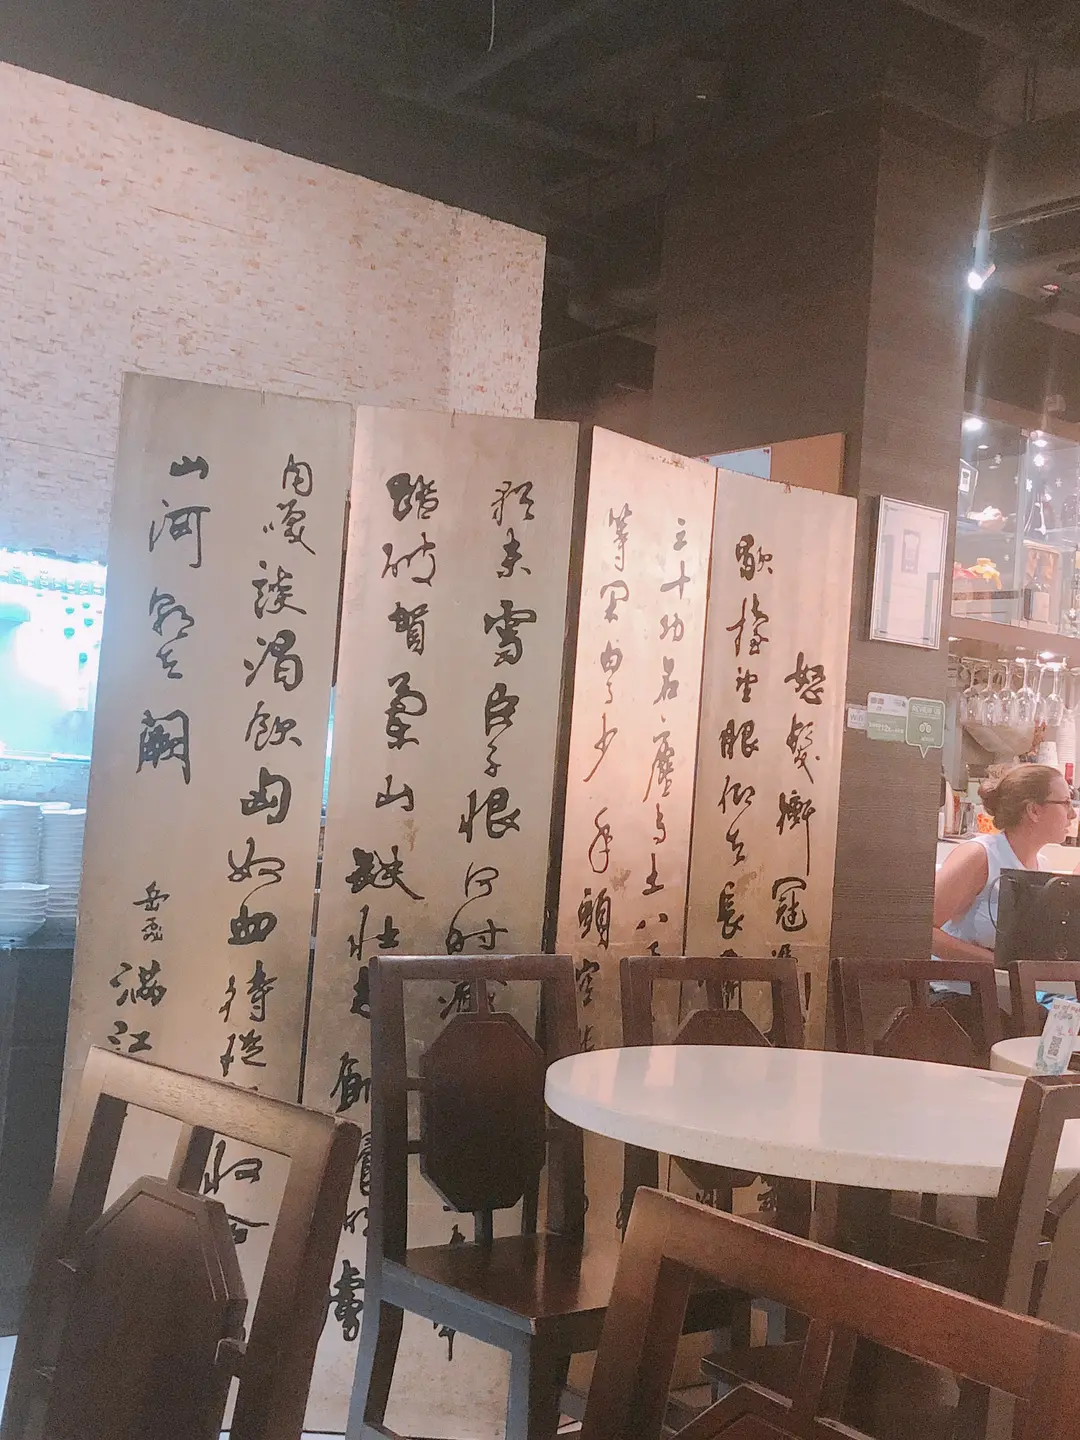 怒髮衝冠
歇抬望眼仰天長嘯
三十功名塵與土八千
等閒白了少年頭空悲
猶未雪臣子恨何時滅
踏破賀蘭山缺壯志飢餐胡虜
肉笑談渴飲匈奴血待從收拾
山河朝天闕
岳飛滿江
REVIEW US